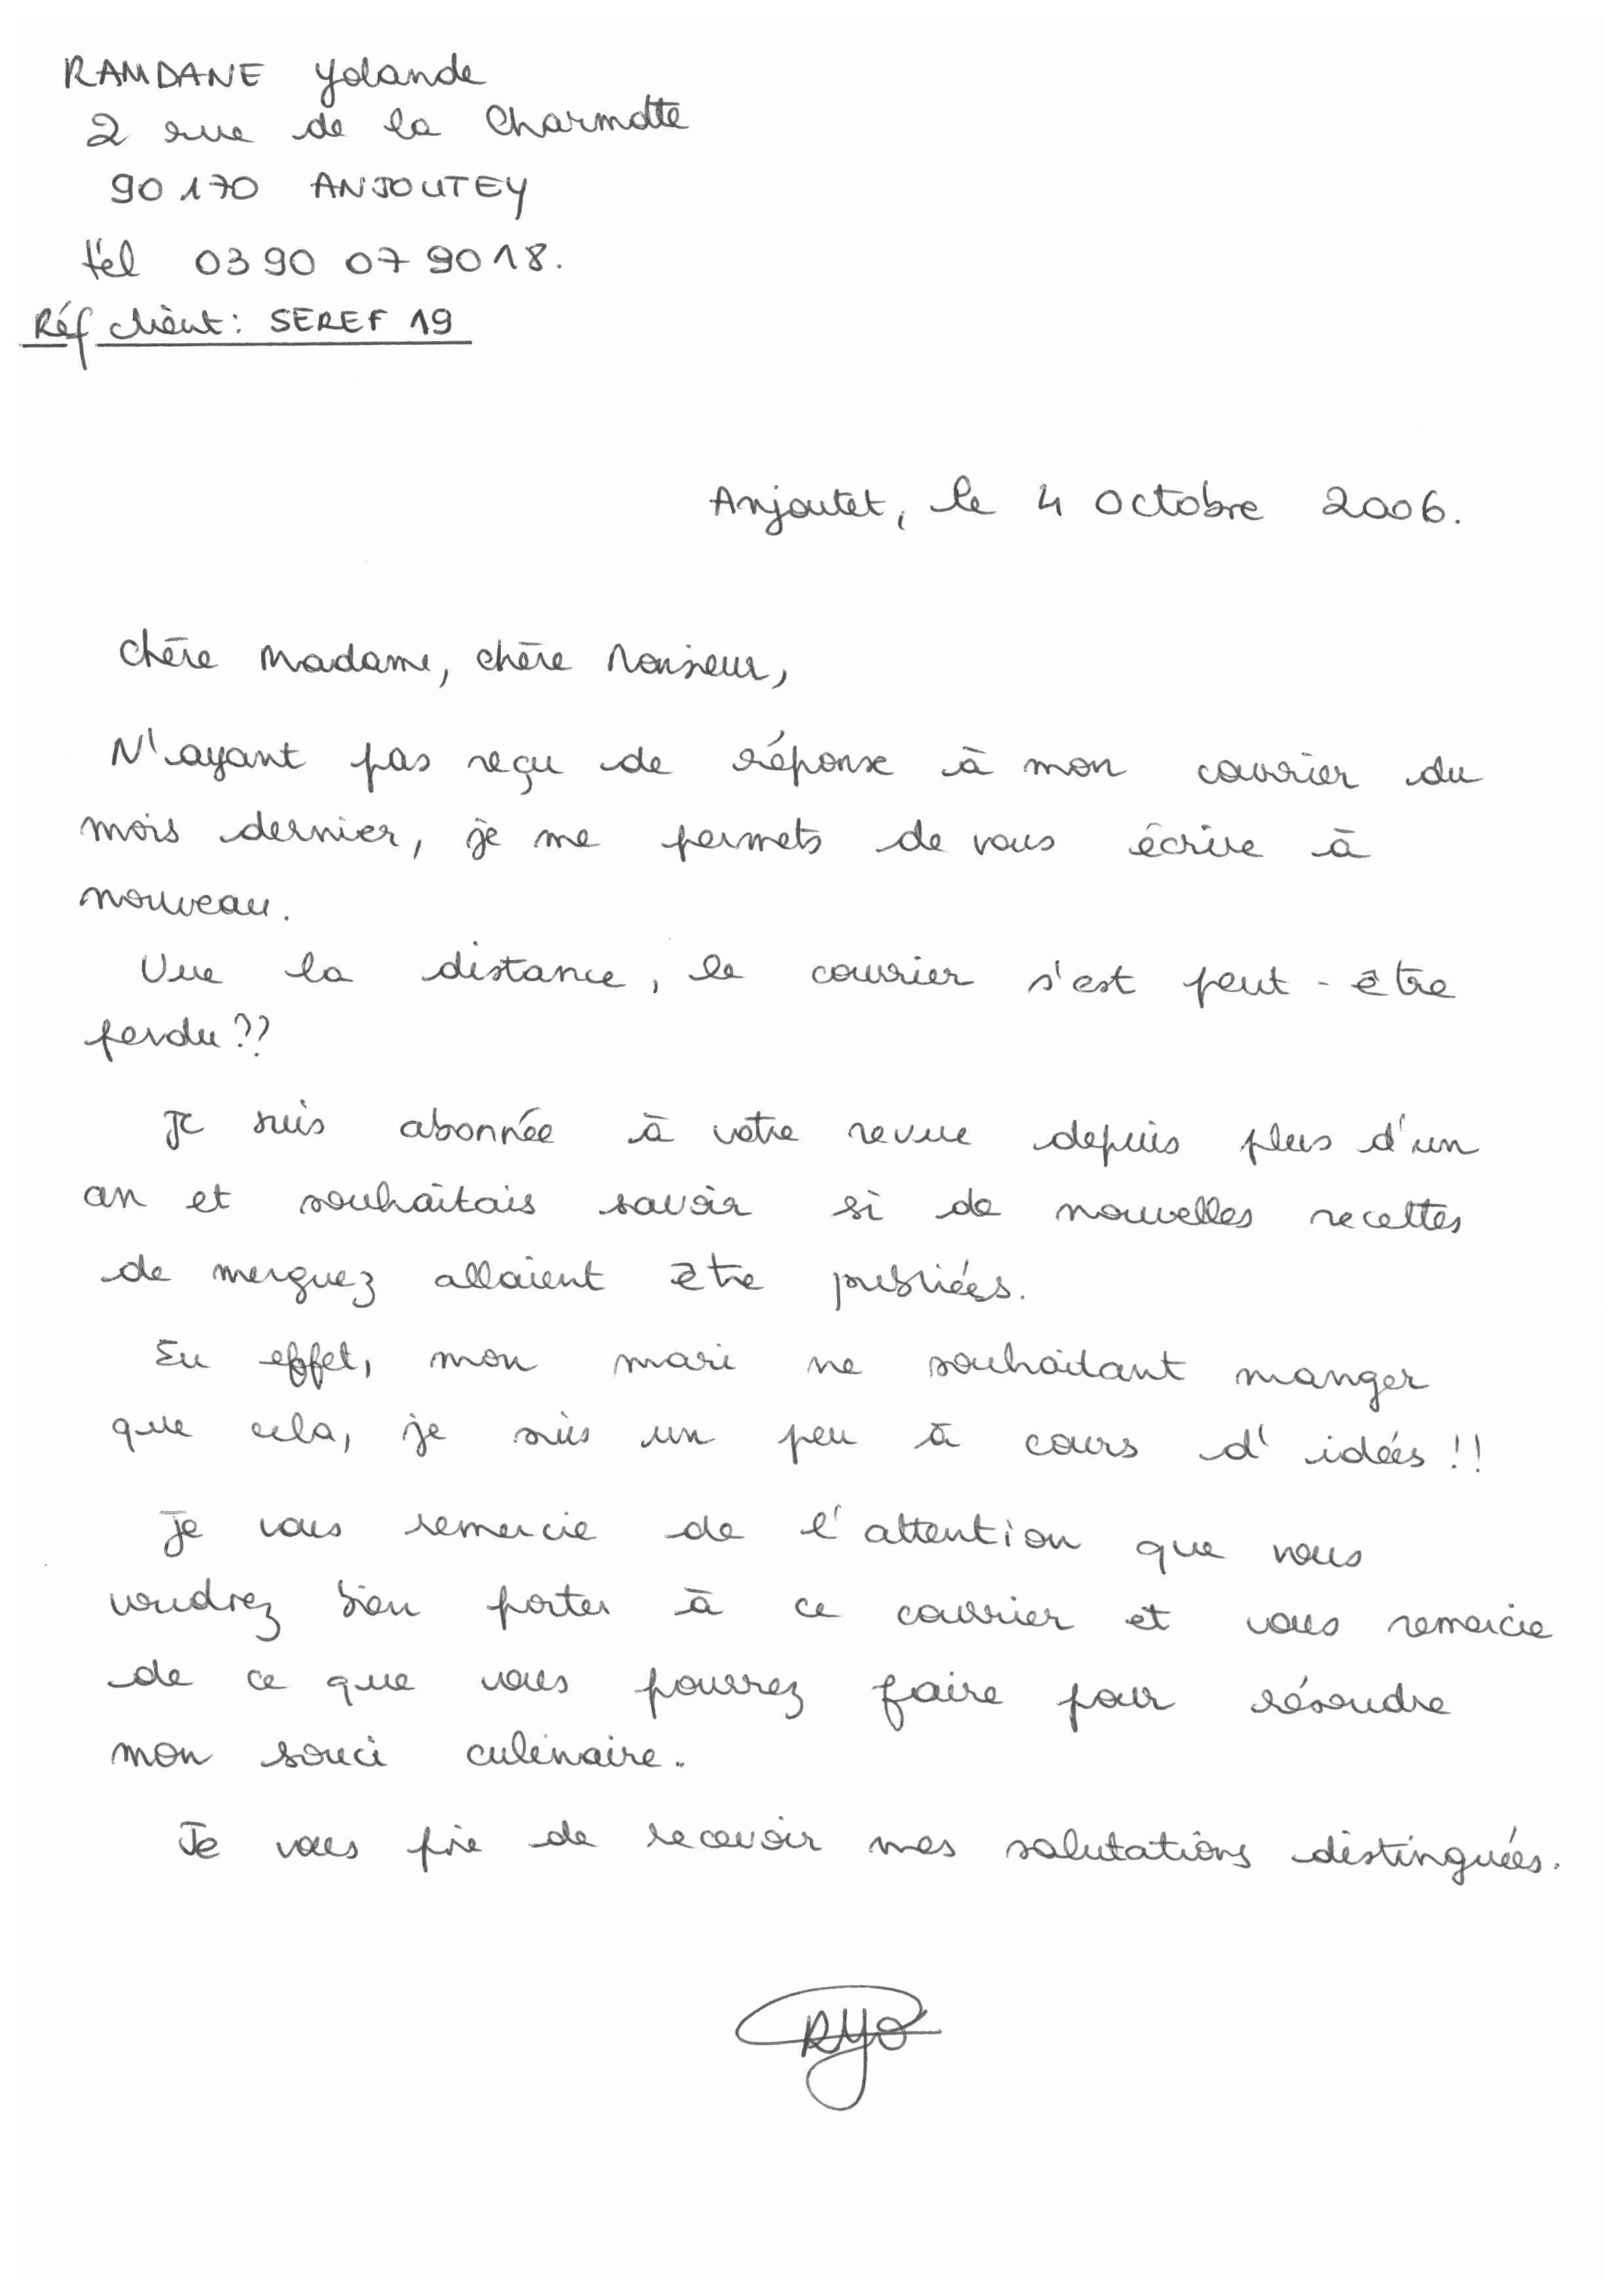 RAMDANE Yolande
2 rue de la Charmotte
90170 ANJOUTEY
tél 03 90 07 90 18.
Réf client : SEREF 19
Anjoutet, le 4 octobre 2006.
Chère Madame, chère Monsieur,
N'ayant pas reçu de réponse à mon courrier du
mois dernier, je me permets de vous écrire à
nouveau.
Vue la distance, le courrier s'est peut-être
perdu ??
Je suis abonnée à votre revue depuis plus d'un
an et souhaitais savoir si de nouvelles recettes
de merguez allaient être publiées.
En effet, mon mari ne souhaitant manger
que cela, je suis un peu à cours d'idées !!
Je vous remercie de l'attention que vous
voudrez bien porter à ce courrier et vous remercie
de ce que vous pourrez faire pour résoudre
mon souci culinaire.
Je vous prie de recevoir mes salutations distinguées.
RYO